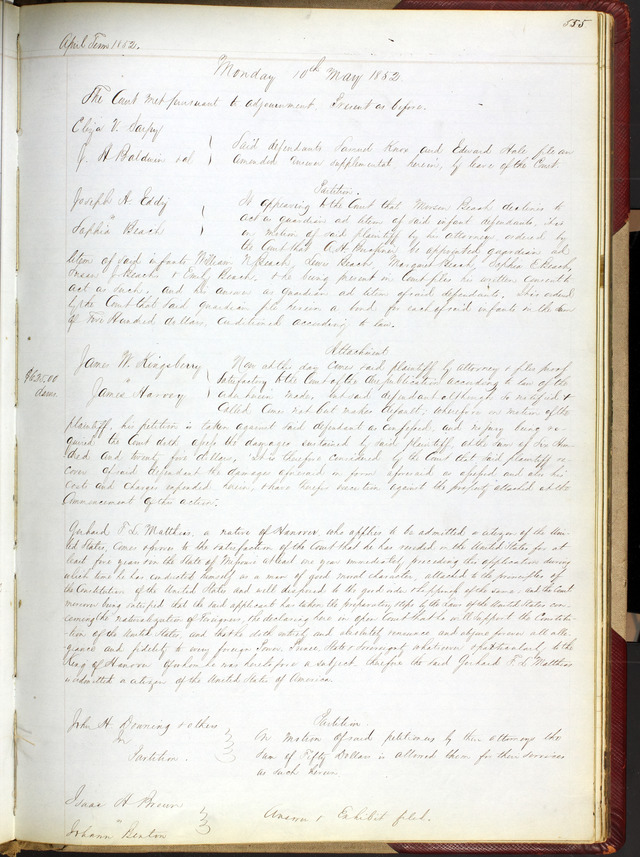 555
April Term 1852.
Monday 10th May 1852.
The Court met pursuant to adjournment, Present as before.
Eliza V.
J. H. Baldwin et al
Said defendants Samuel Knox and Edward Hale file an
amended answer supplemental herein, by leave of the Court.
Partition.
Joseph A. Eddy
"
Sophia Beach
It appearing to the Court that Beach declines to
act as guardian ad litem of said infant defendants, it is
on motion of said plaintiff by his attorney, ordered by
the Court that be appointed guardian ad
litem of said infants William Beach, Beach, Margaret Beach, Sophia E. Beach,
Beach & Emily Beach, & he being present in Court files his written consent to
act as such, and his answer as guardian ad litem of said defendants. It is ordered
by the Court that said guardian file herein a bond for each of said infants in the sum
of Five Hundred dollars, conditioned according to law.
Attachment
James W. Kingsberry
"
James Harvey
$625.00
dams.
Now at this day comes said plaintiff by attorney & files proof
satisfactory to the Court of due publication according to law of the
order herein made, but said defendant although so notified &
called comes not but makes default; therefore on motion of the
plaintiff, his petition is taken against said defendant as confessed, and neither being re-
quired the Court doth assess the damages sustained by said plaintiff, at the sum of Six Hun-
dred and twenty five dollars. It is therefore considered by the Court that said plaintiff re-
cover of said defendant the damages aforesaid in form aforesaid as assessed and also his
costs and charges expended herein, & have thereof execution against the property attached at the
commencement of this action.
Gerhard F. L. Matthias, a native of Hanover, who applies to be admitted a citizen of the Uni-
ted States, comes & proves to the satisfaction of the Court that he has resided in the United States for at
least five years & in the State of Missouri at least one year immediately preceding this application during
which time he has conducted himself as a man of good moral character, attached to the principles of
the Constitution of the United States and well disposed to the good order & happiness of the same: and the Court
moreover being satisfied that the said applicant has taken the preparatory steps by the laws of the United States con-
cerning the naturalization of foreigners, & he declaring here in open Court that he will support the Constitu-
tion of the United States, and that he doth entirely and absolutely renounce and abjure forever all alle-
giance and fidelity to every foreign Power, Prince, State & Sovereignty whatsoever & particularly to the
King of Hanover of whom he was heretofore a subject, therefore the said Gerhard F. L. Matthias
is admitted a citizen of the United States of America.
John H. Downing & others
In
Partition.
Partition.
On motion of said petitioners by their attorneys the
sum of Fifty Dollars is allowed them for their services
as such herein
Isaac H. Brown
"
Johann Benton
Answer & Exhibit filed.